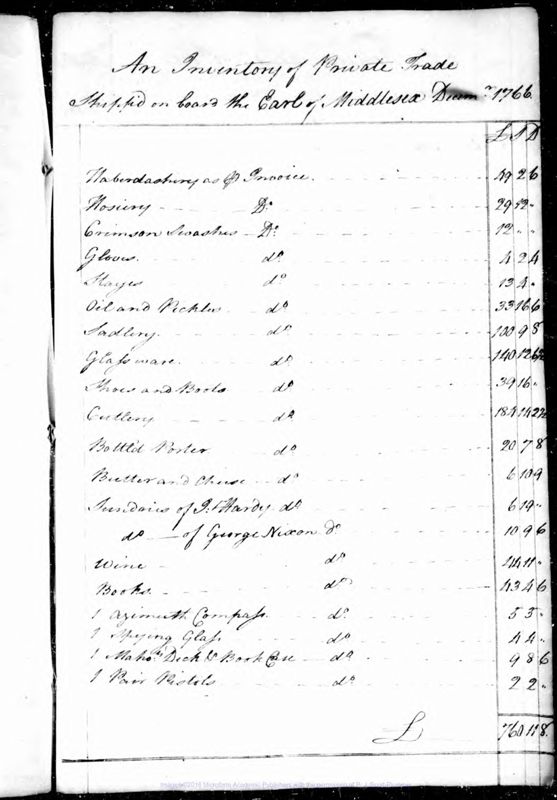 An Inventory of Private Trade
Shipp'd on board the Earl of Middlesex Decemr. 1766
£ S D
Haberdashery as ⅌ Invoice 49 2 6
Hosiery Do. 29 12 "
Crimson Swashes Do. 12 " "
Gloves do 4 2 4
Stayes do 13 4 "
Oil and Pickles do 33 16 6
Sadlery do 100 9 8
Glassware do 140 12 6½
Shoes and Boots do 39 16 "
Cutlery do 184 14 2½
Bottl'd Porter do 20 7 8
Butter and Cheese do 6 10 9
Sundries of Hardy do 6 19 "
do of George Nixon do 10 9 6
Wine do 11 "
Books do 43 4 6
1 Azimuth Compass do 5 5 "
1 Spying Glass do 4 4 "
1 Mahoy. Desk & Book Case do 9 8 6
1 Pair Pistols do 2 2 "
£ 760 11 8